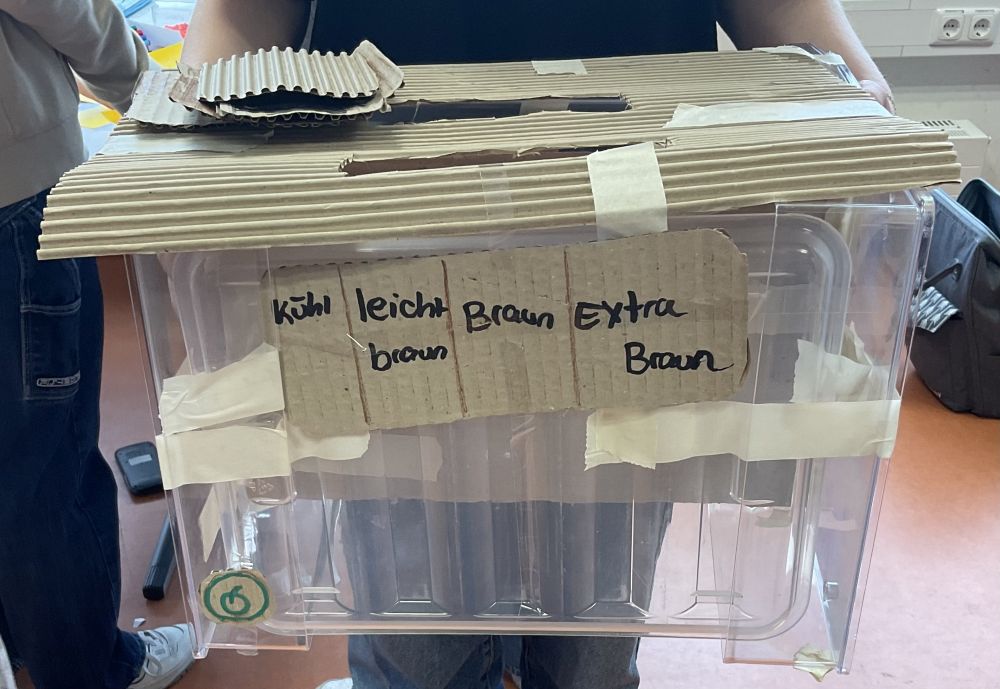 Kühl
leicht
braun
Braun
Extra
Braun